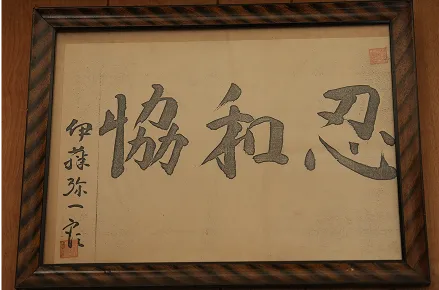 忍和恊
伊藤弥一